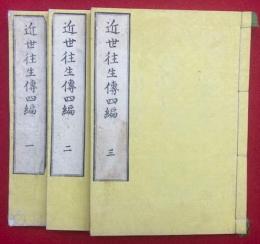 近世往生傳四編 三
近世往生傳四編 二
近世往生傳四編 一